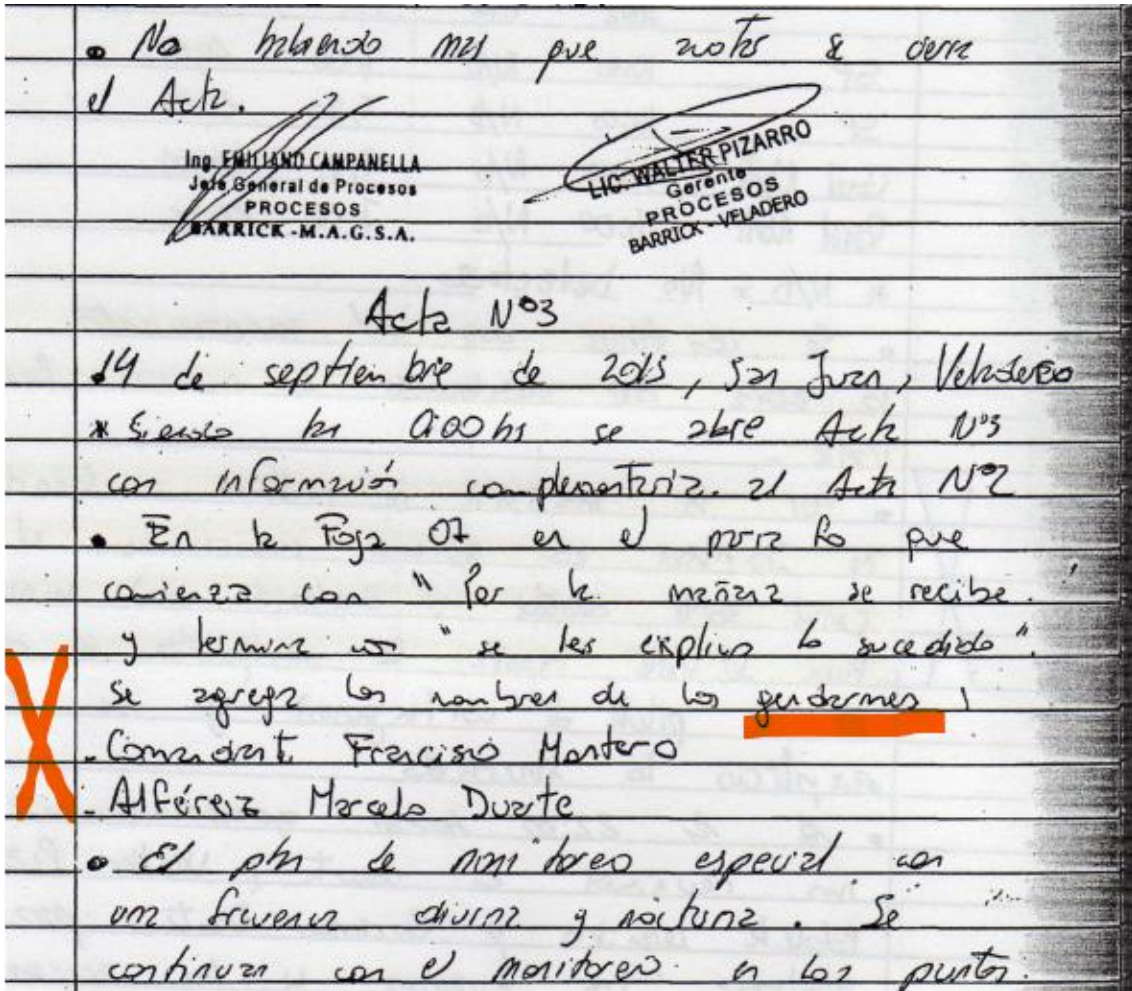 • No habiendo mas que notar se cierra
el Acta.
Ing. EMILIANO CAMPANELLA
Jefe General de Procesos
PROCESOS
BARRICK - M.A.G.S.A.
LIC. WALTER PIZARRO
Gerente
PROCESOS
BARRICK - VELADERO
Acta N°3
14 de septiembre de 2015, San Juan, Veladero
* Siendo las 0:00 hs se abre Acta N°3
con información complementaria al Acta N°2
• En la Foja 07 en el parrafo que
comienza con "Por la mañana se recibe.
y termina con "se les explica lo sucedido".
Se agrega los nombres de los gendarmes
- Comandante Francisco Montero
- Alférez Marcelo Duarte
• El plan de monitoreo especial con
una frecuencia diurna y nocturna. Se
continuan con el monitoreo en los puntos